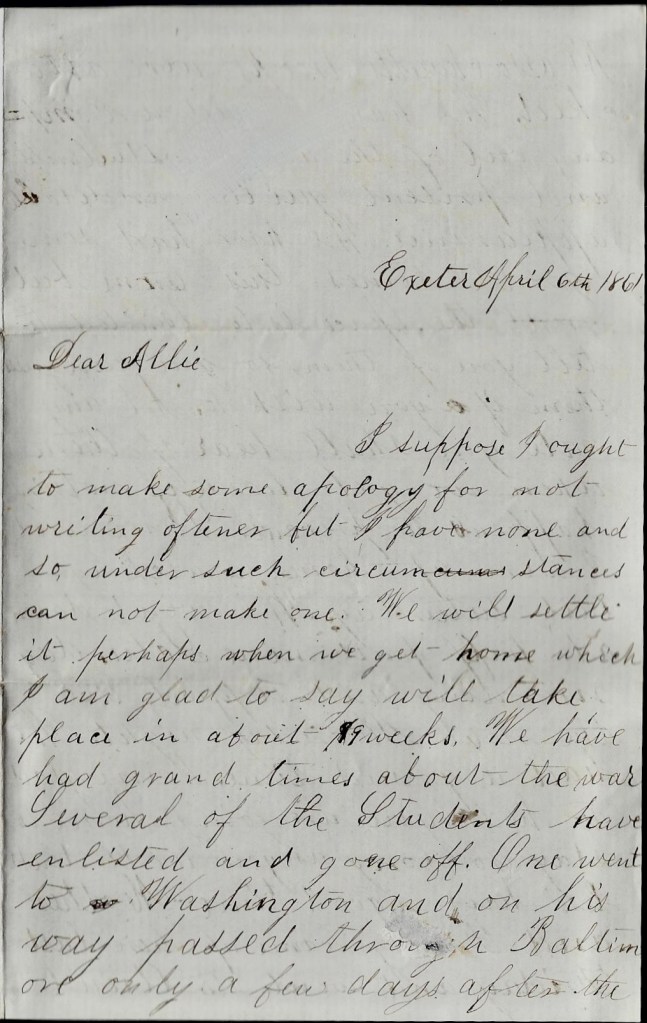 Exeter April 6th 1861
Dear Allie
I suppose I ought
to make some apology for not
writing oftener but I have none and
so, under such circumstances
can not make one. We will settle
it perhaps when we get home which
I am glad to say will take
place in about 9 weeks. We have
had grand times about the war
Several of the Students have
enlisted and gone off. One went
to Washington and on his
way passed through Baltim
ore only a few days after the